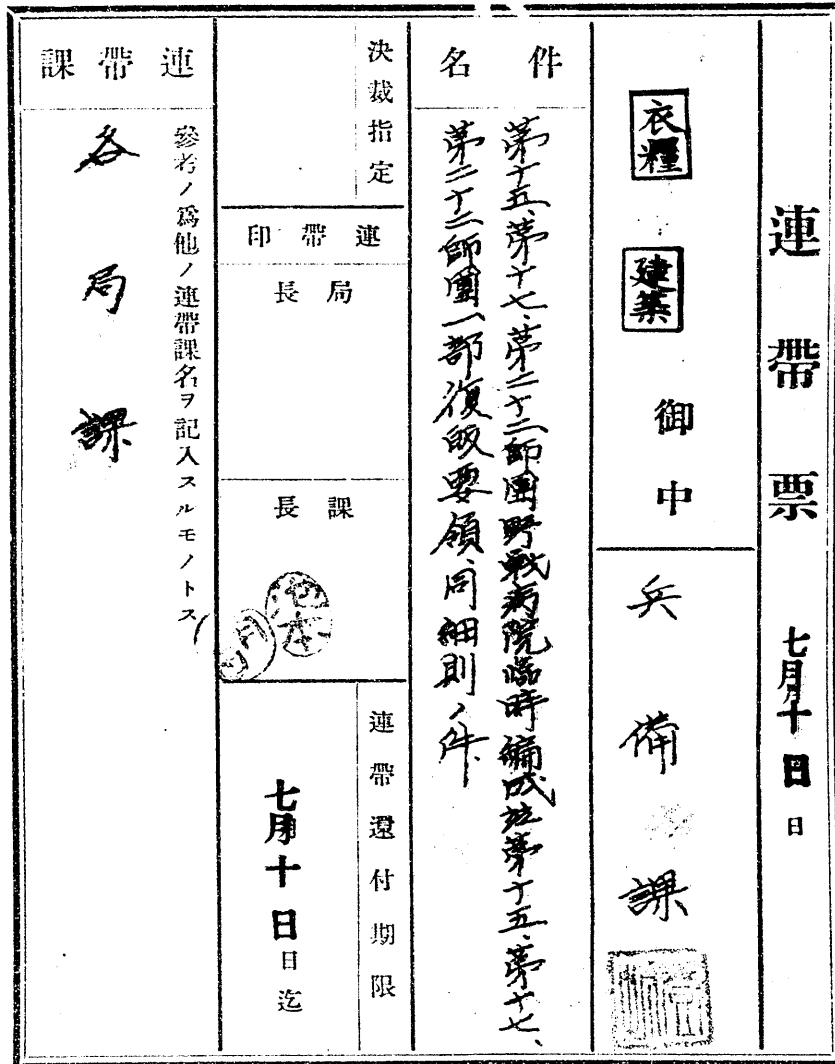 連帶票 七月十日日
衣糧 建築 御中
兵備課
件名
第十五、第十七、第二十二師團野戰病院臨時編成竝第十五、第十七、
第二十二師團一部復皈要領、同細則ノ件
決裁指定
連帶印
局長
課長
連帶還付期限
七月十日日迄
連帶課
參考ノ爲他ノ連帶課名ヲ記入スルモノトス
各局課